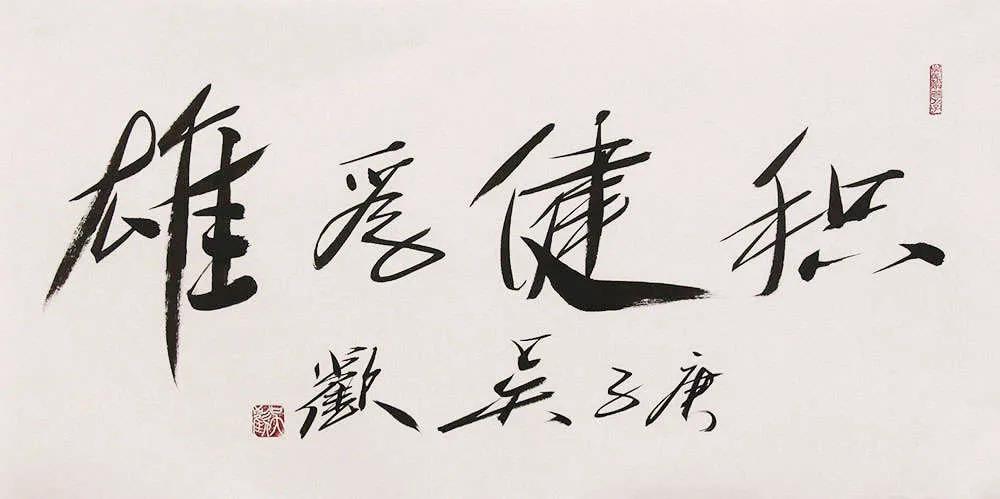 积健爲雄
庚子吴歡